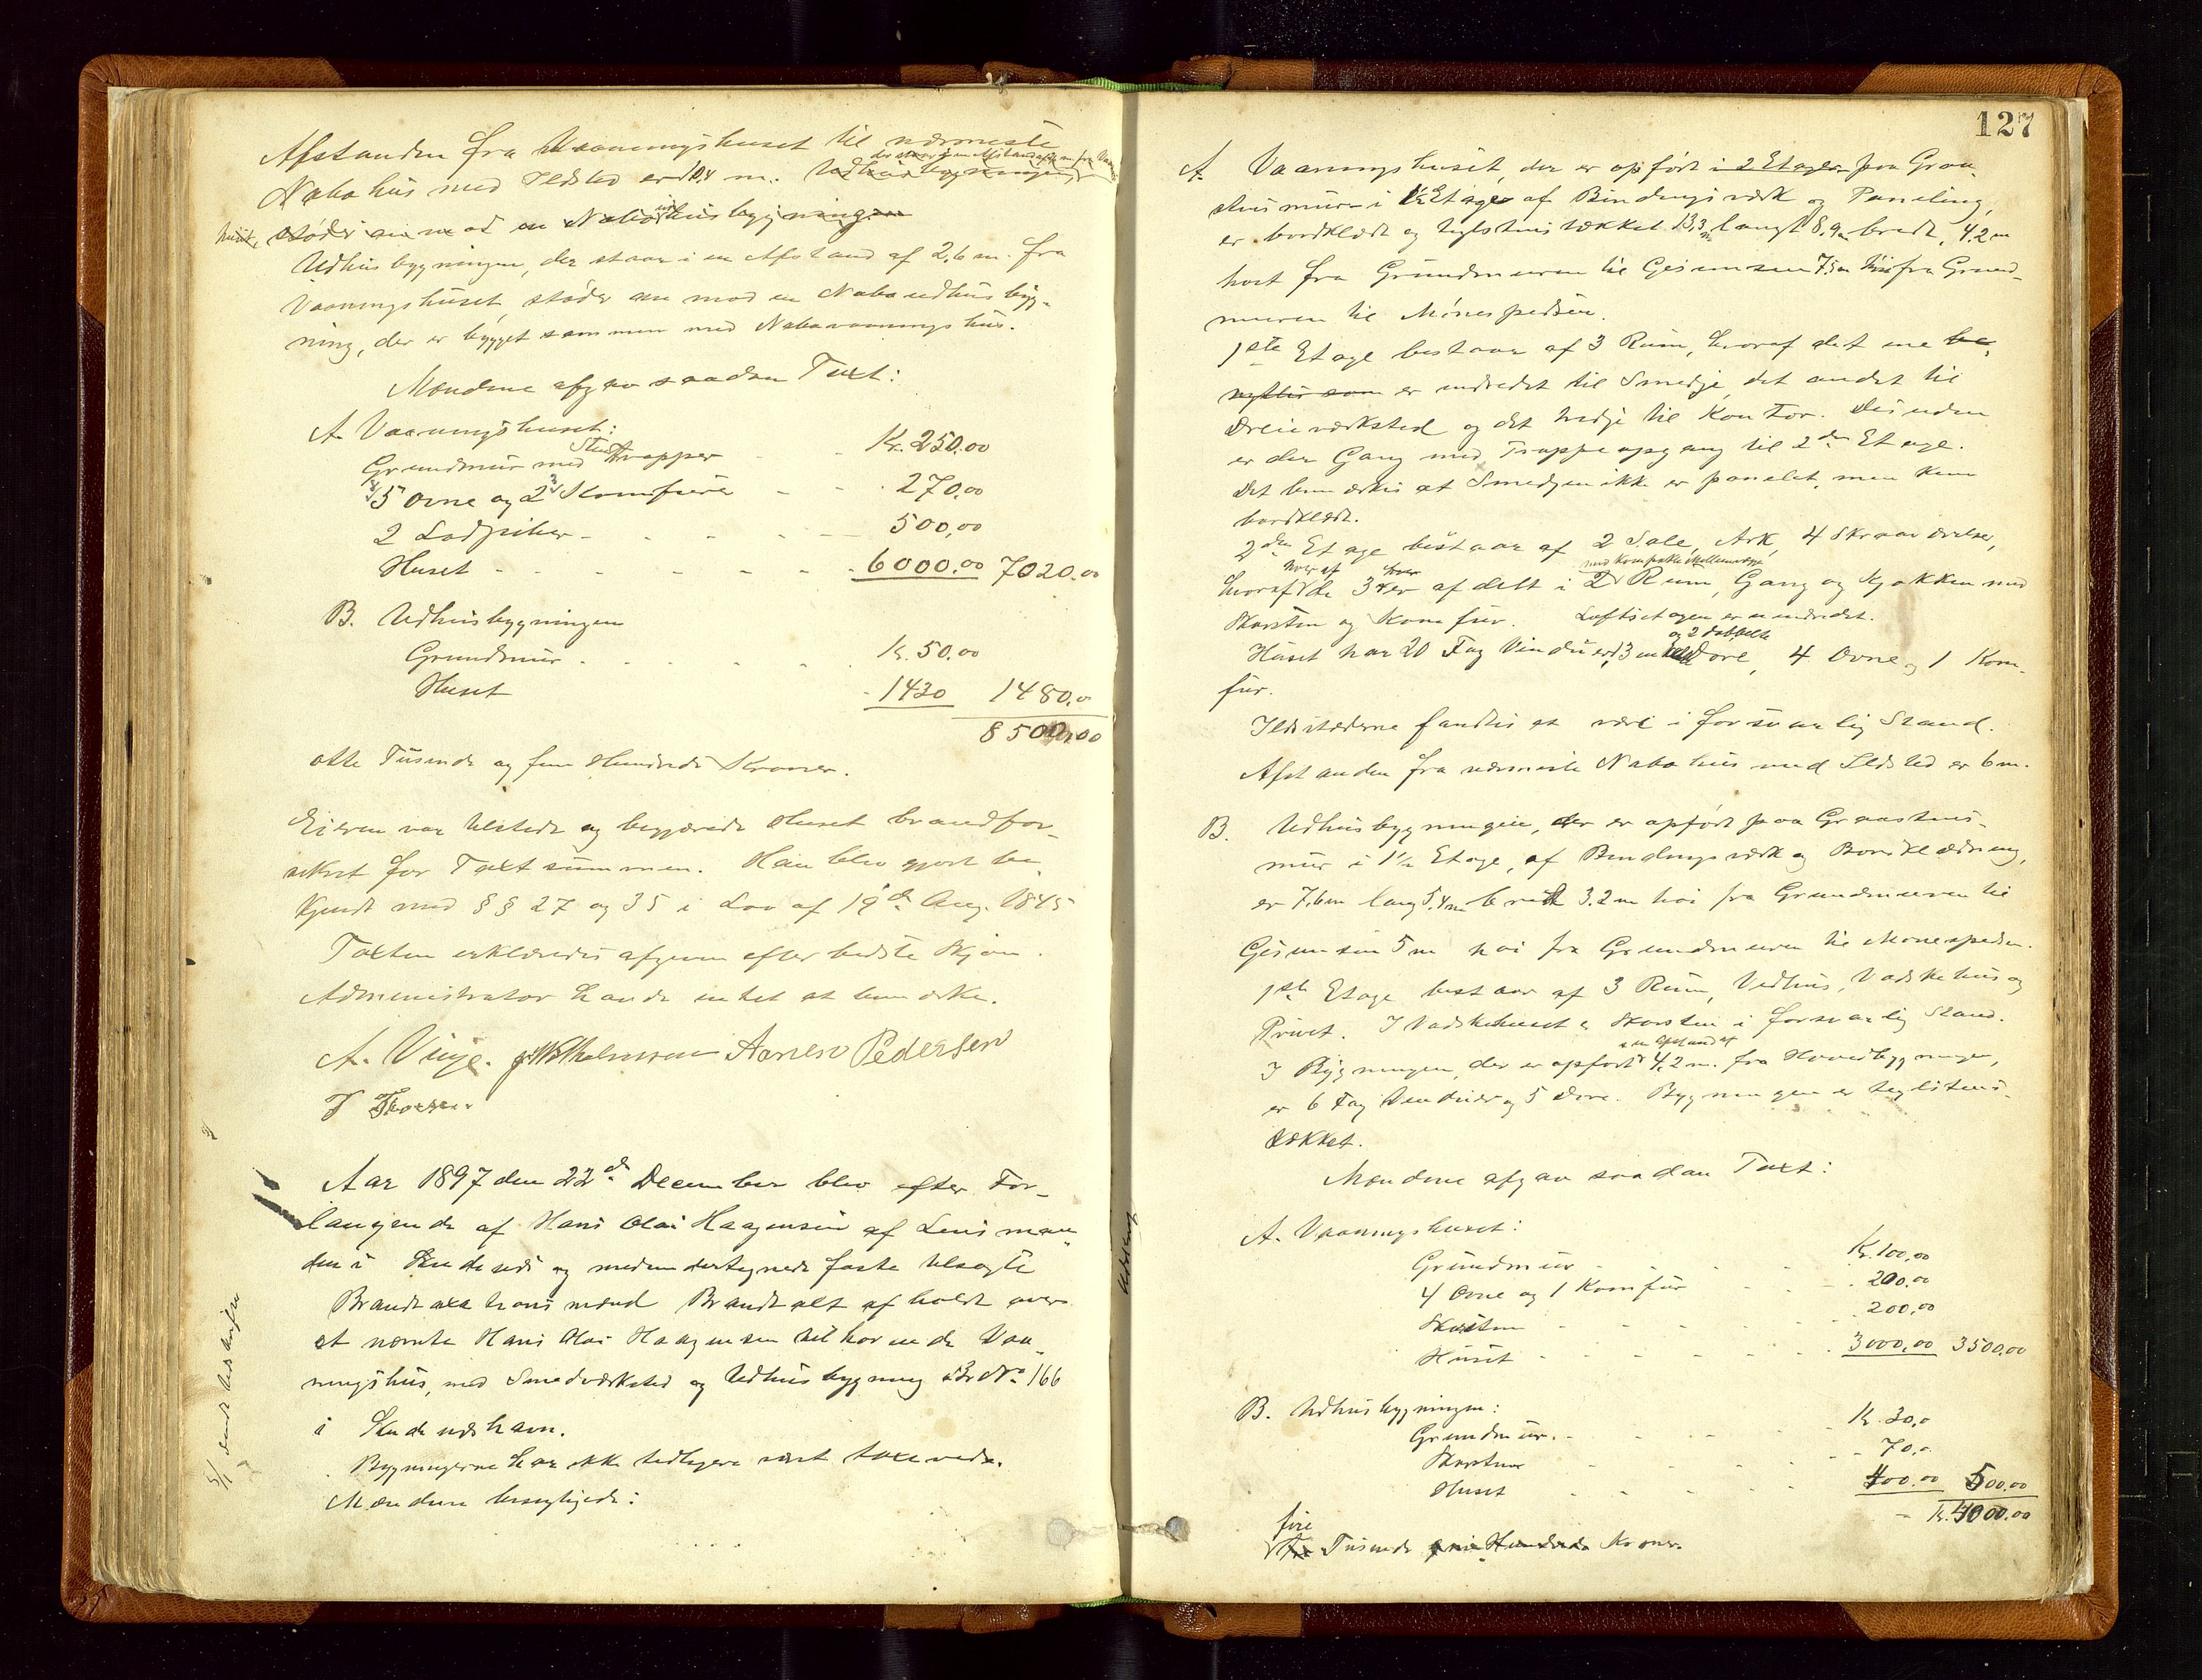 Afstanden fra Vaaningshuset til nærmeste
Nabohus med Ildsted er 10,4 m. Udhusbygningen,
støder an mod en Nabo udhusbygningen
Udhusbygningen, der staar i en Afstand af 2,6 m. fra
Vaaningshuset, støder an mod en Naboudhusbyg-
ning, der er bygget sammen med Nabovaaningshus.
Mændene afgav saadan Taxt:
A. Vaaningshuset:
Grundmur med Stentrapper - - Kr. 250,00
5 Ovne og 2 Komfurer - - 270,00
2 Lodpiber - - - - 500,00
Huset - - - - - 6000,00 7020,00
B. Udhusbygningen
Grundmur - - - - - Kr. 50,00
Huset - 1430 1480,0
8500,00
otte Tusinde og fem Hundrede Kroner.
Eieren var tilstede og begjærede Huset brandfor-
sikret for Taxtsummen. Han blev gjort be-
kjendt med §§ 27 og 35 i Lov af 19de Aug. 1845
Taxten erklæredes afgiven efter bedste Skjøn.
Administrator havde intet at bemærke.
A. Vinje. Aanen Pedersen
Aar 1897 den 22de December blev efter For-
langende af Hans Olai Haagensen af Lensman-
den i Skudenes og medundertegnede faste tilsagte
Brandtaxationsmænd Brandtaxt afholdt over
et nævnte Hans Olai Haagensen tilhørende Vaa-
ningshus, med Smedværksted og Udhusbygning Br No 166
i Skudeneshavn.
Bygningerne har ikke tidligere været taxerede.
Mændene besigtigede:
127
A. Vaaningshuset, der er opført i 2 Etager paa Graa-
stensmur i 1½ Etage af Bindingsværk og Paneling,
er bordklædt og teglstenstækket 13,3 m langt 8,9 m bredt, 4,2 m
høit fra Grundmuren til Gesimsen 7,5 m høit fra Grund-
muren til Mønespidsen.
1ste Etage bestaar af 3 Rum, hvoraf det ene be-
nyttes som er indredet til Smedje, det andet til
Dreieværksted og det tredje til Kontor. Desuden
er der Gang med Trappeopgang til 2den Etage.
Det bemærkes at Smedjen ikke er panelet, men kun
bordklædt.
2den Etage bestaar af 2 Sale, Ark, 4 Skraaværelser,
med kompakte Mellemvægge
hvoraf de 3 er afdelt i 2 Rum, Gang og Kjøkken med
Skorsten og Komfur. Loftsetagen er uindredet.
og 2 dobbelte
Huset har 20 Fag Vinduer, 3 enkelt Døre, 4 Ovne og 1 Kom-
fur.
Ildstederne fandtes at være i forsvarlig Stand.
Afstanden fra nærmeste Nabohus med Ildsted er 6 m.
B. Udhusbygningen, der er opført paa Graastens-
mur i 1½ Etage, af Bindingsværk og Bordklædning,
er 7,6 m lang 5,4 m bredt 3.2 m høi fra Grundmuren til
Gesimsen 5 m høi fra Grundmuren til Mønespidsen.
1ste Etage bestaar af 3 Rum, Vedhus, Vadskehus og
Privet. I Vadskehuset er Skorsten i forsvarlig Stand.
i en Afstand af
I Bygningen, der er opført 4,2 m. fra Hovedbygningen,
er 6 Fag Vinduer og 5 Døre. Bygningen er teglstens-
tækket.
Mændene afgav saadan Taxt:
A. Vaaningshuset:
Grundmur - - - - Kr. 100,00
4 Ovne og 1 Komfur - - - 200,00
Skorsten - - - - 200,00
Huset - - - - - 3000,00 3500,00
B. Udhusbygningen:
Grundmur. - - - - Kr. 30,0
Skorsten - - - - 70,0
Huset - - - - 400,00 500,00
- Kr. 4000,00
fire
Tusinde Hundrede Kroner.